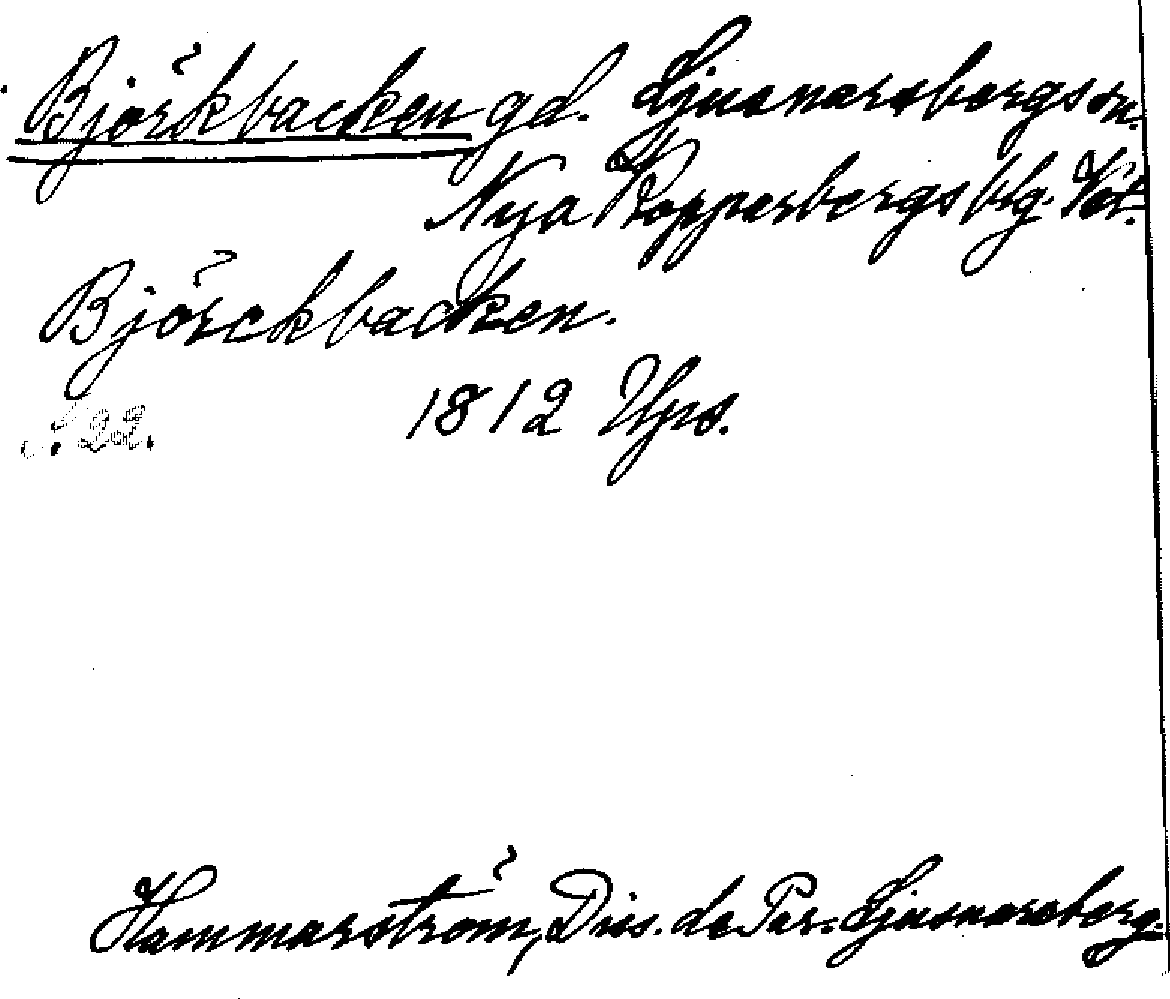 Björkbacken gd. Ljusnarsbergs sn.
Nya Kopparbergs blg. Väst.
Björckbacken.
1812 Ups.
s. 22.
Hammarström, Diss. de Par. Ljusnarsberg.